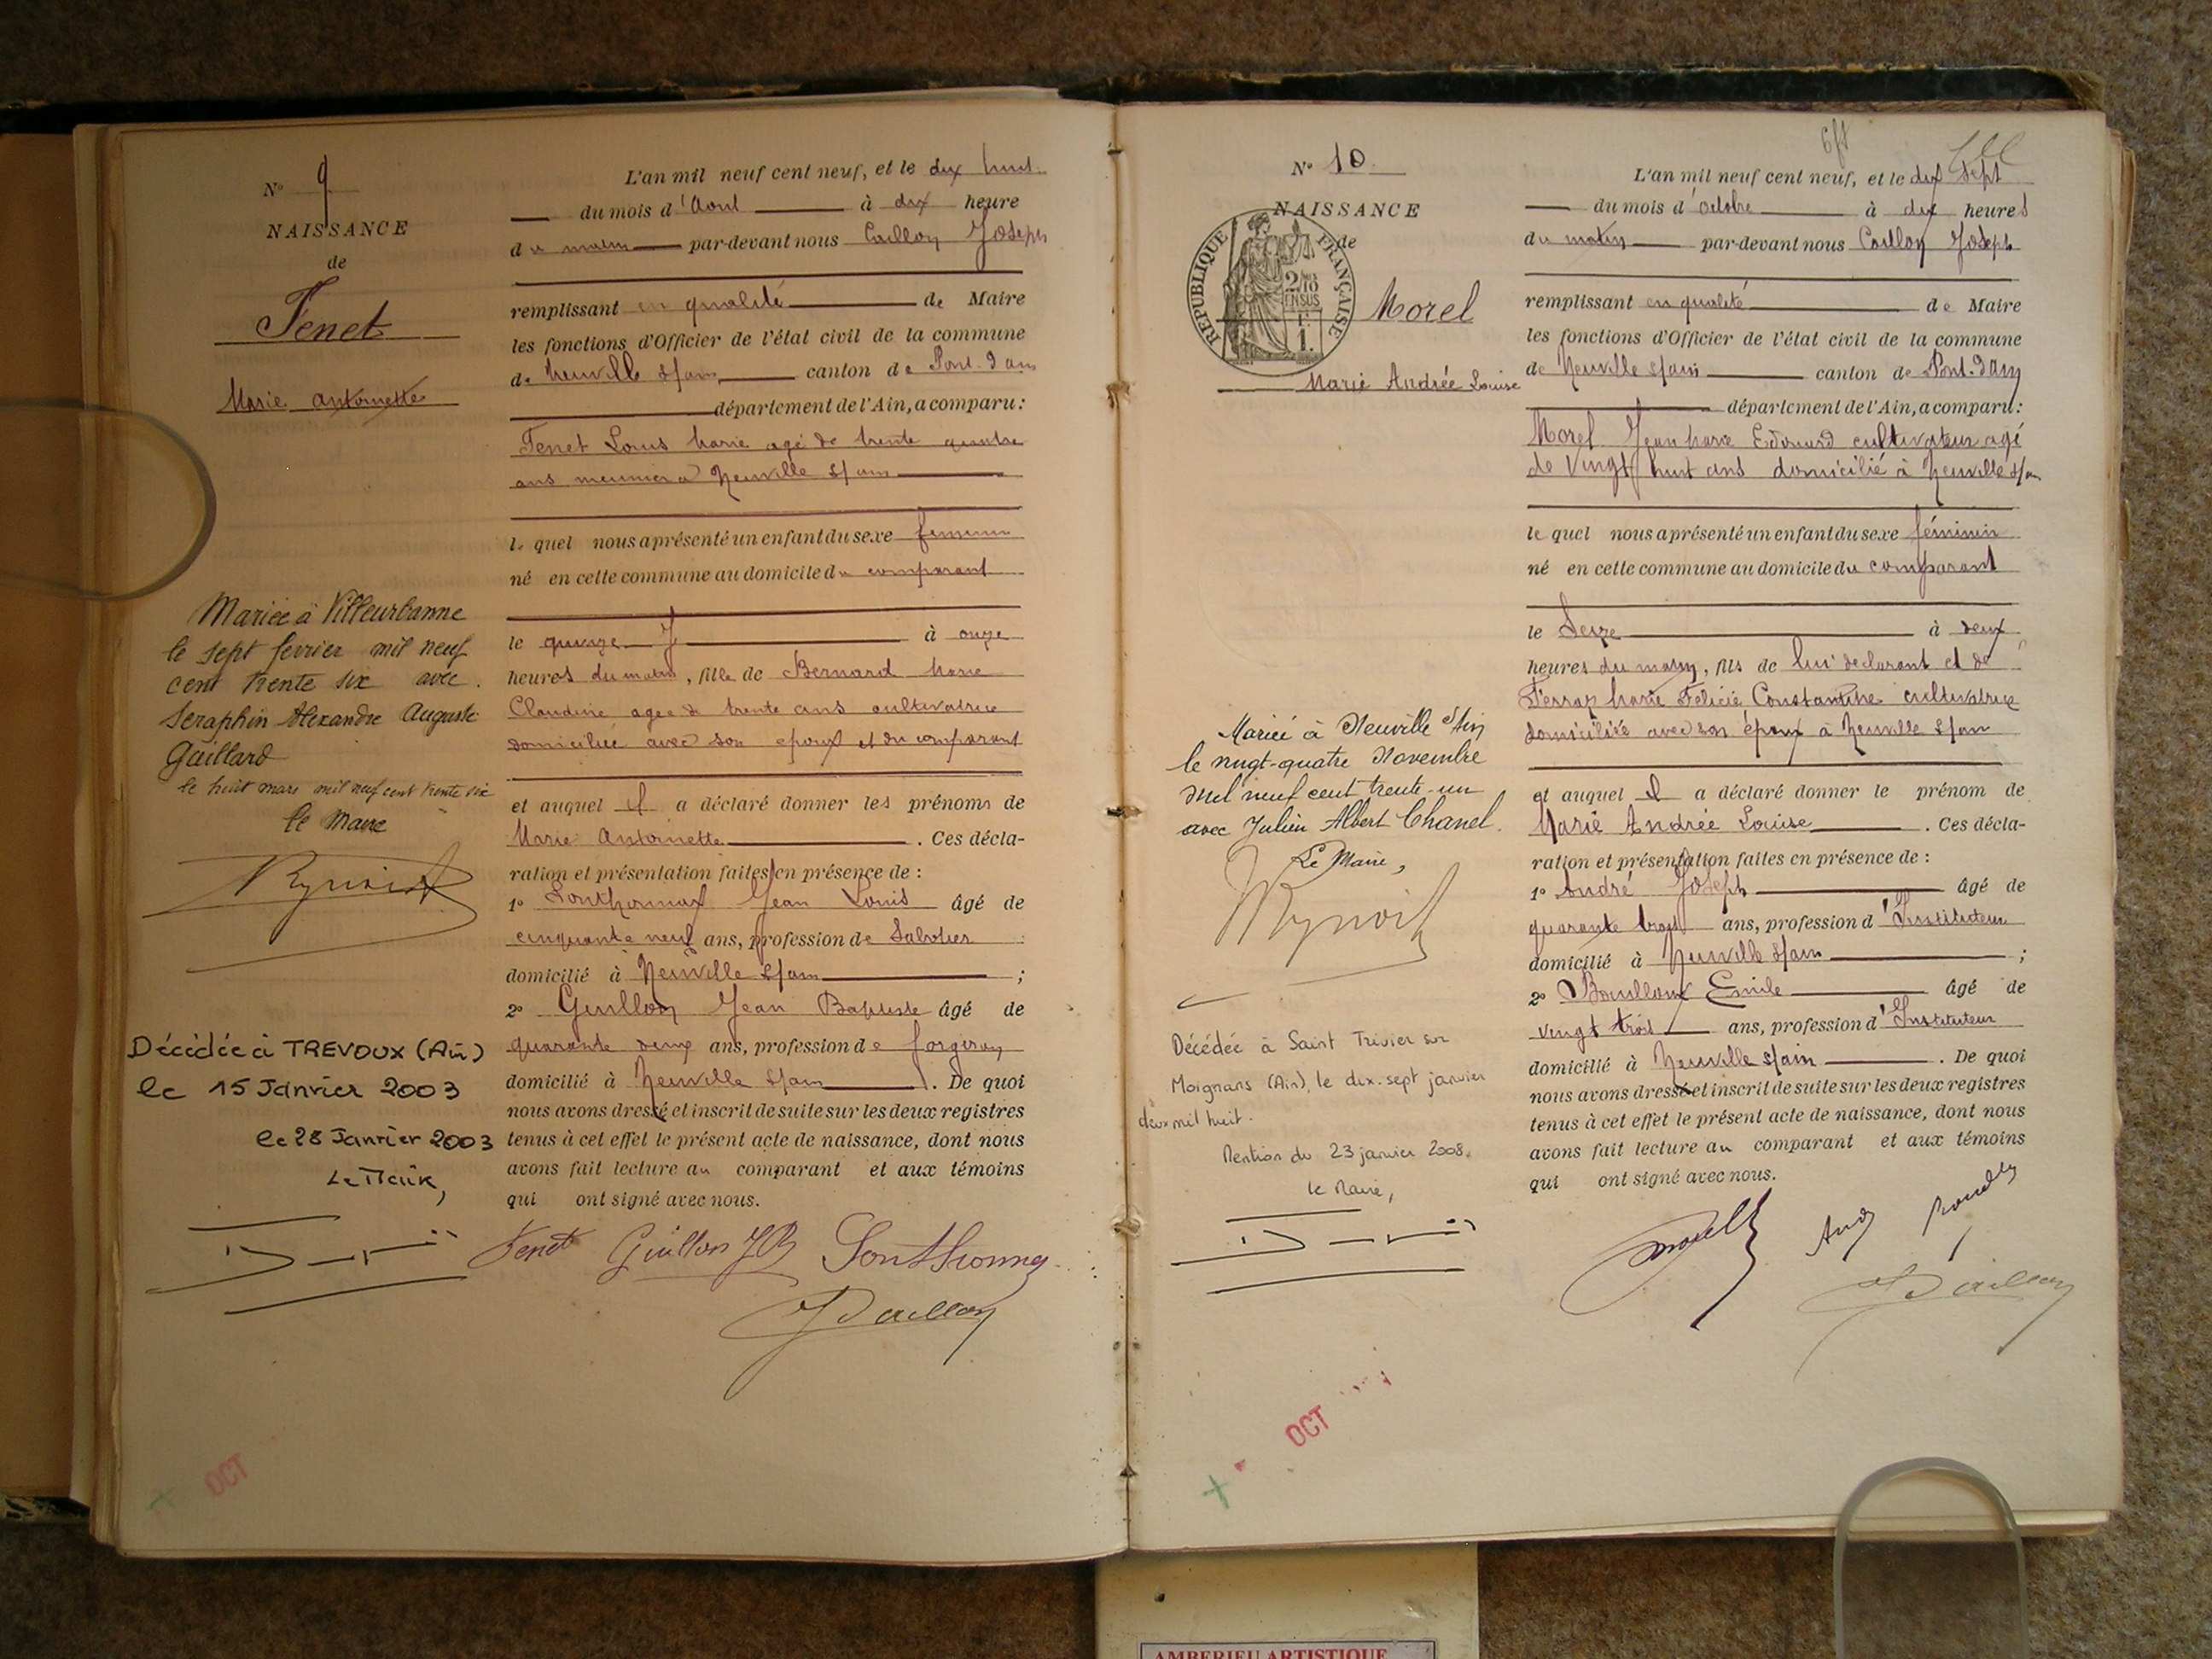 N° 9
NAISSANCE
de
Tenet
Marie Antoinette
Mariée à Villeurbanne
le sept fevrier mil neuf
cent trente six avec
Seraphin Alexandre Auguste
Gaillard
le huit mars mil neuf cent trente six
le Maire
Décédée à TREVOUX (Ain)
le 15 Janvier 2003
le 28 Janvier 2003
Le Maire,
L'an mil neuf cent neuf, et le dix huit
du mois d'Aout à dix heure
du matin par-devant nous Caillon Joseph
remplissant en qualité de Maire
les fonctions d'Officier de l'état civil de la commune
de Neuville s/ain canton de Pont. d'ain
département de l'Ain, a comparu :
Tenet Louis Marie agé de trente quatre
ans meunier a Neuville s/ain
le quel nous a présenté un enfant du sexe feminin
né en cette commune au domicile du comparant
le quinze à onze
heures du matin, fille de Bernard Marie
Claudine agee de trente ans cultivatrice
domiciliée avec son epoux et du comparant
et auquel il a déclaré donner les prénoms de
Marie Antoinette. Ces décla-
ration et présentation faites en présence de :
1° Sonthonnax Jean Louis âgé de
cinquante neuf ans, profession de Sabotier
domicilié à Neuville s/ain ;
2° Guillon Jean Baptiste âgé de
quarante ans, profession de forgeron
domicilié à Neuville s/ain. De quoi
nous avons dressé et inscrit de suite sur les deux registres
tenus à cet effet le présent acte de naissance, dont nous
avons fait lecture au comparant et aux témoins
qui ont signé avec nous.
Tenet Guillon JB Sonthonnax
J Caillon
OCT
N° 10
NAISSANCE
de
REPUBLIQUE FRANÇAISE
2/10 EN SUS
1.
Morel
Marie Andrée Louise
Mariée à Neuville s/Ain
le vingt-quatre Novembre
mil neuf cent trente-un
avec Julien Albert Chanel.
Le Maire,
Décédée à Saint Trivier sur
Moignans (Ain), le dix-sept janvier
deux mil huit.
Mention du 23 janvier 2008.
le Maire,
L'an mil neuf cent neuf, et le dix sept
du mois d'octobre à dix heures
du matin par-devant nous Caillon Joseph
remplissant en qualité de Maire
les fonctions d'Officier de l'état civil de la commune
de Neuville s/ain canton de Pont. d'Ain
département de l'Ain, a comparu :
Morel Jean Marie Edouard cultivateur agé
de Vingt huit ans domicilié à Neuville s/ain
le quel nous a présenté un enfant du sexe féminin
né en cette commune au domicile du comparant
le Seize à deux
heures du matin, fils de lui déclarant et de
Ferraz Marie Felicie Constantine cultivatrice
domiciliée avec son époux à Neuville s/ain
et auquel il a déclaré donner le prénom de
Marie Andrée Louise. Ces décla-
ration et présentation faites en présence de :
1° André Joseph âgé de
quarante trois ans, profession d'Instituteur
domicilié à Neuville s/ain ;
2° Bouilloux Emile âgé de
vingt trois ans, profession d'Instituteur
domicilié à Neuville s/ain. De quoi
nous avons dressé et inscrit de suite sur les deux registres
tenus à cet effet le présent acte de naissance, dont nous
avons fait lecture au comparant et aux témoins
qui ont signé avec nous.
Morel
J Caillon
OCT
AMBERIEU ARTISTIQUE